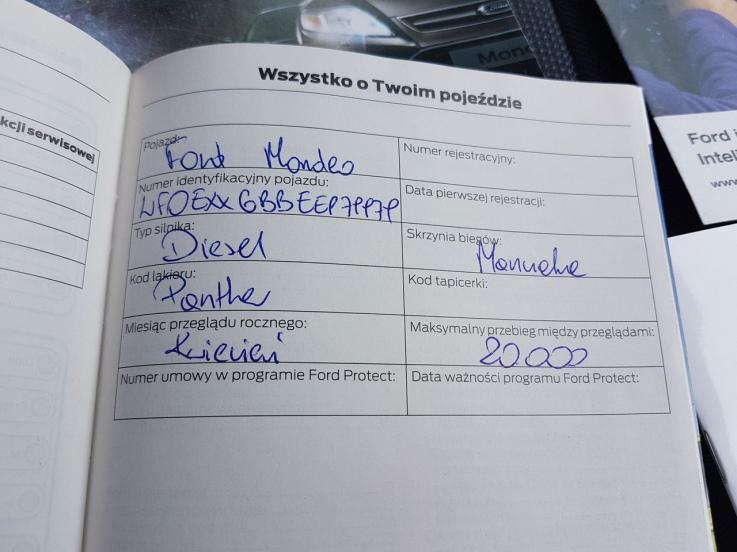 Mond
kcji serwisowej
Wszystko o Twoim pojeździe
Pojazd:
Ford Mondeo
Numer rejestracyjny:
Numer identyfikacyjny pojazdu:
WF0EXXGBBEEP7PP7P
Data pierwszej rejestracji:
Typ silnika:
Diesel
Skrzynia biegów:
Manualna
Kod lakieru:
Panther
Kod tapicerki:
Miesiąc przeglądu rocznego:
Kwiecień
Maksymalny przebieg między przeglądami:
20000
Numer umowy w programie Ford Protect:
Data ważności programu Ford Protect:
Ford i
Inteli
www